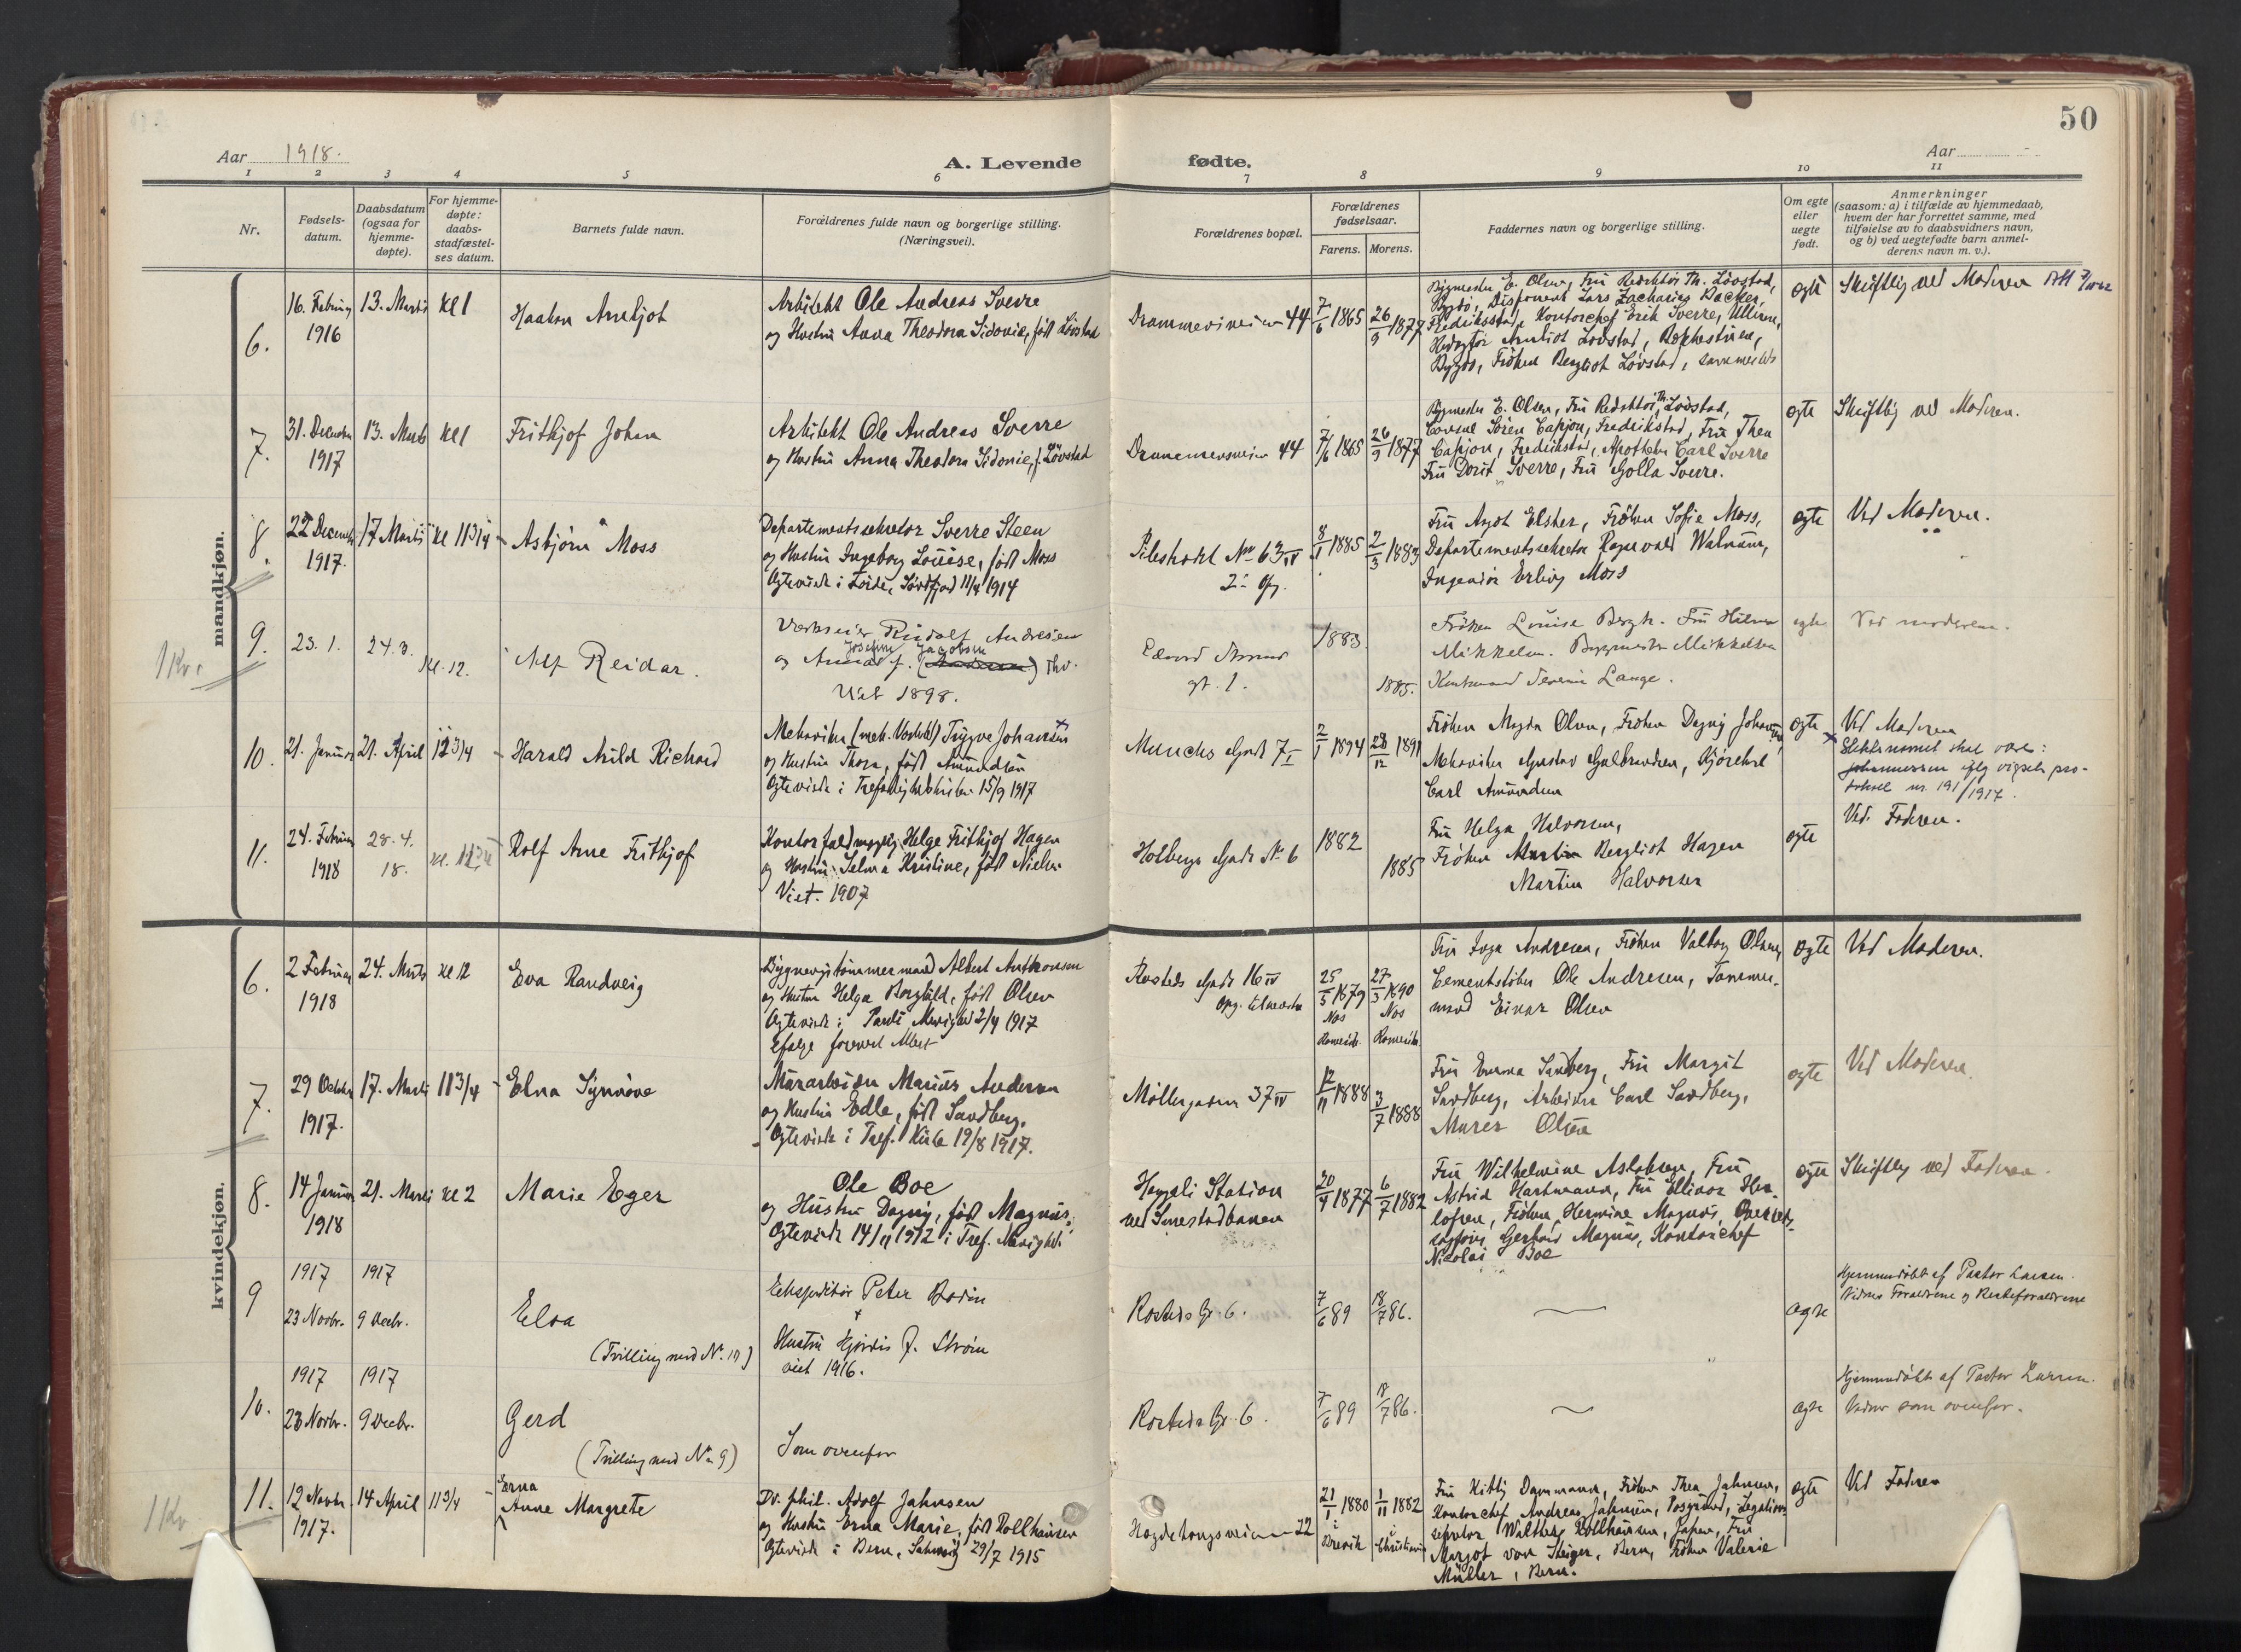 50
Aar 1918.
A. Levende fødte.
Aar
1 2 3 4 5 6 7 8 9 10 11
Nr.
Fødsels-
datum.
Daabsdatum
(ogsaa for
hjemme-
døpte).
For hjemme-
døpte:
daabs-
stadfæstel-
ses datum.
Barnets fulde navn.
Forældrenes fulde navn og borgerlige stilling.
(Næringsvei).
Forældrenes bopæl.
Forældrenes
fødselsaar.
Farens. Morens.
Faddernes navn og borgerlige stilling.
Om egte
eller
uegte
født.
Anmerkninger
(saasom: a) i tilfælde av hjemmedaab,
hvem der har forrettet samme, med
tilføielse av to daabsvidners navn,
og b) ved uegtefødte barn anmel-
derens navn m. v.).
mandkjøn.
6.
16. Februar
1916
13. Marts
Kl 1
Haakon Arnljot
Arkitekt Ole Andreas Sverre
og Hustru Anna Theodora Sidonie, født Lövstad
Drammensveien 44
7/6 1865
26/9 1877
Bygmester E. Olsen, Fru Redaktör Th. Lövstad,
Bygdö, Disponent Lars Zacharias Backer,
Fredriksstad, Kontorchef Erik Sverre, Ullern,
Arnljot Lövstad,
Bygdö, Fröken Bergljot Lövstad, sammesteds
egte
Skriftlig ved Moderen
7.
31. December
1917
13. Marts
Kl 1
Frithjof Johan
Arkitekt Ole Andreas Sverre
og Hustru Anna Theodora Sidonie, f. Lövstad
Drammensveien 44
7/6 1865
26/9 1877
Bygmester E. Olsen, Fru Redaktör Th. Lövstad,
Consul Sören Capjon, Fredrikstad, Fru Thea
Capjon, Fredrikstad, Apotheker Carl Sverre
Fru Dorit Sverre, Fru Golla Sverre.
egte
Skriftlig ved Moderen.
8.
22 December
1917.
17 Marts
Kl 11 3/4
Asbjörn Moss
Departementssekretær Sverre Steen
og Hustru Ingeborg Louise, født Moss
Egteviede i Förde, Söndfjord 11/4 1914
Pilestrædet No 63 IV
2den Opg.
8/1 1885
2/3 1883
Fru Aagot Elster, Fröken Sofie Moss,
Departementssekretær Ragnvald Walnum,
Ingeniör Erling Moss
egte
Ved Moderen.
1 Kr.
9.
23. 1.
24. 3.
Kl. 12.
Alf Reidar.
Værkseier Rudolf Andresen
Josefine Jacobsen
og Anna f.
Viet 1898.
Edvard Storms
gt. 1.
1883.
1885.
Fröken Louise Bergh. Fru Hilma
Mikkelsen. Bygmester Mikkelsen
Severin Lange.
egte
Ved moderen.
10.
21. Januar
21. April
12 3/4
Harald Arild Richard
Mekaniker (mek. Værksted) Trygve Johansen
og Hustru Thora, født Amundsen
Egteviede i Trefoldighedskirken 15/9 1917
Munchs Gade 7 I
2/1 1894
28/12 1891
Fröken Magda Olsen, Fröken Dagny Johansen,
Mekaniker Gustav Gulbrandsen, Kjörekarl
Carl Amundsen
egte
Ved Moderen
Slektsnavnet skal være:
Johannessen iflg vigsels pro-
tokoll nr. 191/1917.
11.
24. Februar
1918
28. 4.
18.
Kl. 12 3/4
Rolf Arne Frithjof
Kontorfuldmægtig Helge Frithjof Hagen
og Hustru Selma Kristine, født Nielsen
Viet. 1907
Holbergs Gade No 6
1882
1885
Fru Helga Halvorsen,
Fröken Bergliot Hagen
Martin Halvorsen
egte
Ved Faderen.
kvindekjøn.
6.
2 Februar
1918
24. Marts
Kl 12
Eva Randveig
Bygningstömmermand Albert Anthonsen
og Hustru Helga Borghild, født Olsen
Egteviede i Pauli Menighed 2/4 1917
Rosteds Gade 16 IV
25/5 1879
Nes
Romerike
27/3 1890
Nes
Romerike
Fru Inga Andresen, Fröken Valborg Olsen,
Cementstöber Ole Andresen, Tömmer-
mand Einar Olsen
egte
Ved Moderen.
7.
29 October
1917.
17. Marts
11 3/4
Elna Synnöve
Murarbeider Marius Andersen
og Hustru Edle, født Sandberg.
Egteviede i Tref. Kirke 19/8 1917.
Möllergaden 37 IV
12/11 1888
3/7 1888
Fru Emma Sandberg, Fru Margit
Sandberg, Arbeider Carl Sandberg,
Murer Olsen
egte
Ved Moderen.
8.
14 Januar
1918
21. Marts
Kl 2
Marie Eger
Ole Boe
og Hustru Dagny, født Magnus,
Egteviede 14/11 1912 i Tref. Menighet
Heggeli Station
ved Smestadbanen
20/4 1877
6/7 1882
Fru Wilhelmine Aslaksen, Fru
Astrid Hartmann, Fru Ellinor Her-
lofsen, Fröken Hermine Magnus, Overrets-
sagförer Gerhard Magnus, Kontorchef
Nicolai Boe
egte
Skriftlig ved Faderen.
9
1917
23 Novbr.
1917
9 Decbr.
Elsa
(Tvilling med No. 10)
Ekspeditör Peter Bodin
+
Hustru Hjördis f. Ström
viet 1916.
Rosteds G. 6.
7/6 89
18/7 86.
egte
Hjemmedöbt af Pastor Larsen.
Vidner Forældrene og Bedsteforældrene
10.
1917
23 Novbr.
1917
9 Decbr.
Gerd
(Tvilling med No 9)
Som ovenfor
Rosteds Gt. 6.
7/6 89
18/7 86.
egte
Hjemmedöbt af Pastor Larsen.
Vidner som ovenfor.
1 Kr
11.
12 Novbr.
1917.
14 April
11 3/4
Erna
Anne Margrete
Dr. phil. Adolf Jahnsen
og Hustru Erna Marie, født Bollhausen
Egteviede i Bern, 29/7 1915
Hegdehaugsveien 22
21/1 1880
i
Brevik
1/11 1882
i
Christiania
Fru Kitty Dammann, Fröken Thea Jahnsen,
Kontorchef Andreas Jahnsen, Porsgrund, Legations-
sekretær Walther Bollhausen, Japan, Fru
Margot von Steiger, Bern, Fröken Valerie
Müller, Bern.
egte
Ved Faderen